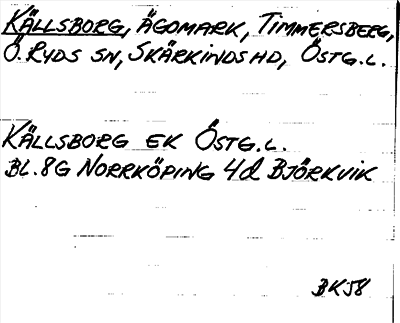 KÄLLSBORG, ÄGOMARK, TIMMERSBERG,
Ö. RYDS SN, SKÄRKINDS HD, ÖSTG.L.
KÄLLSBORG EK ÖSTG.L.
BL.8G NORRKÖPING 4d BJÖRKVIK
BK58